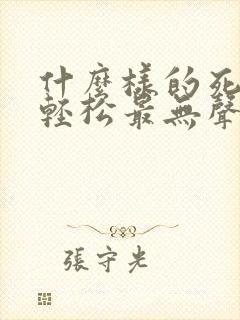 什麼樣的死
輕松最無聲
張守光